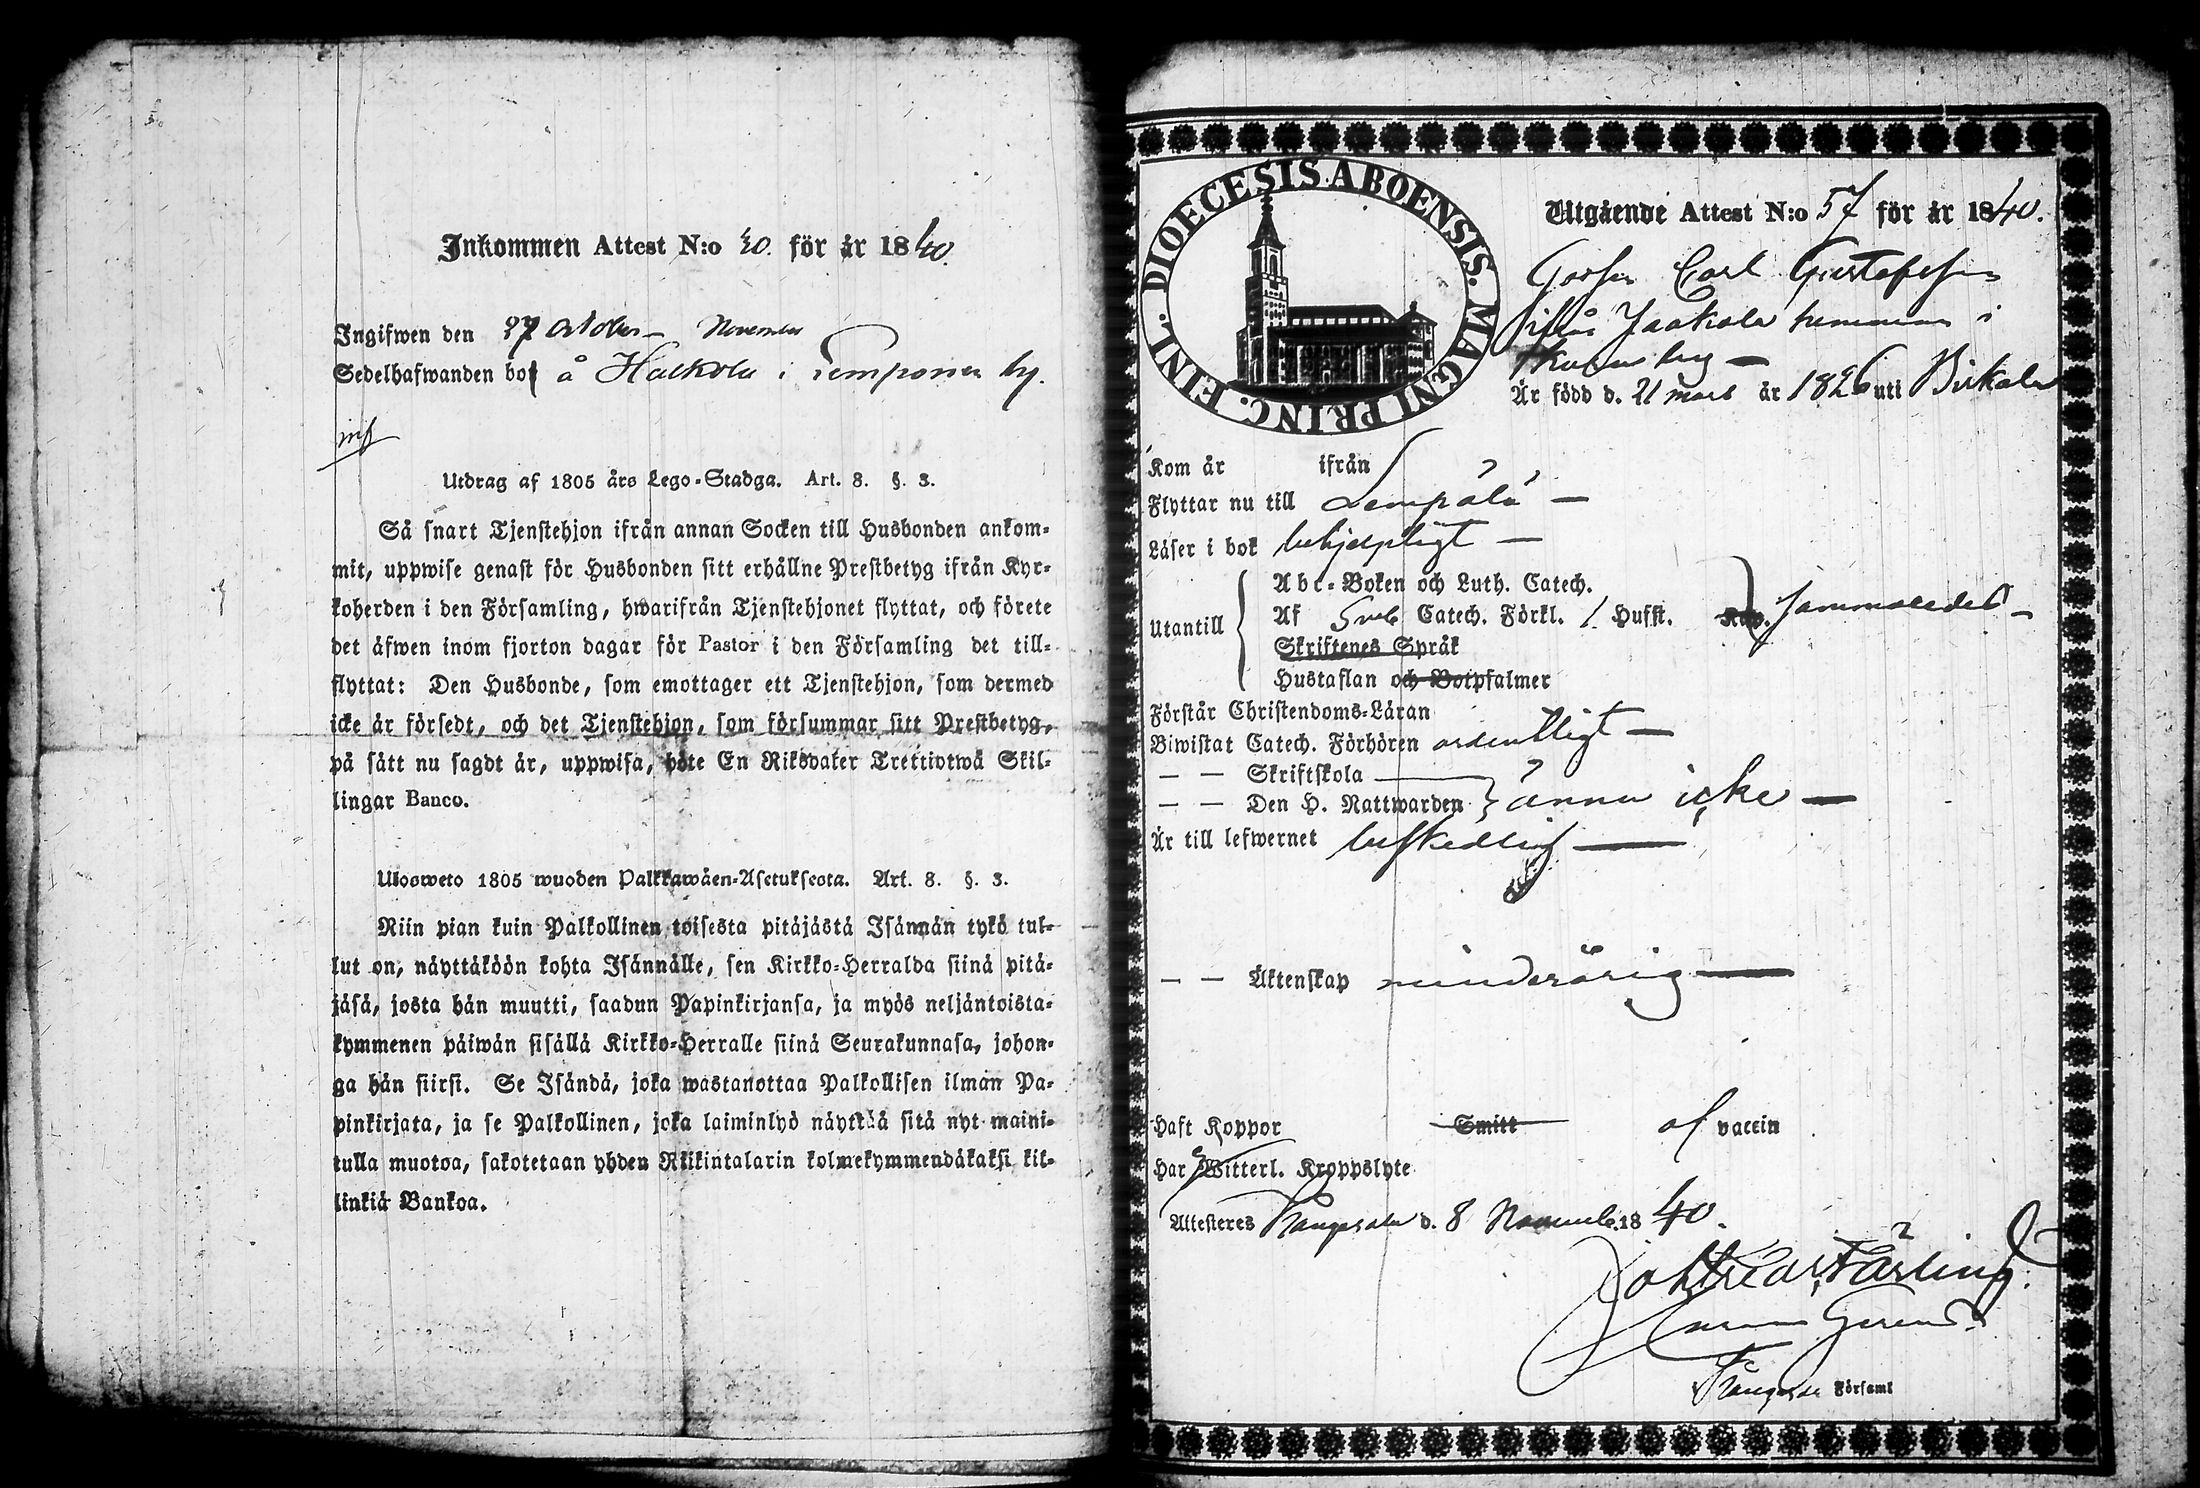 Inkommen Attest N:o 20. för år 1840.
Ingifwen den 27 October – November
Sedelhafwanden bor å Halkola i Lemponen by.
Utdrag af 1805 års Lego-Stadga. Art. 8. §. 3.
Så snart Tjenstehjon ifrån annan Socken till Husbonden ankom-
mit, uppwise genast för Husbonden sitt erhållne Prestbetyg ifrån Kyr-
koherden i den Församling, hwarifrån Tjenstehjonet flyttat, och förete
det äfwen inom fjorton dagar för Pastor i den Församling det till-
flyttat: Den Husbonde, som emottager ett Tjenstehjon, som dermed
icke är försedt, och det Tjenstehjon, som försummar sitt Prestbetyg,
på sätt nu sagdt är, uppwisa, böte En Riksdaler Trettiotwå Skil-
lingar Banco.
Ulosweto 1805 wuoden Palkkawäen-Asetuksesta. Art. 8. §. 3.
Niin pian kuin Palkollinen toisesta pitäjästä Isännän tykö tul-
lut on, näyttäköön kohta Isännälle, sen Kirkko-Herralda siinä pitä-
jäsä, josta hän muutti, saadun Papinkirjansa, ja myös neljäntoista-
kymmenen päiwän sisällä Kirkko-Herralle siinä Seurakunnasa, johon-
ga hän siirsi. Se Isändä, joka wastanottaa Palkollisen ilman Pa-
pinkirjata, ja se Palkollinen, joka laiminlyö näyttää sitä nyt maini-
tulla muotoa, sakotetaan yhden Riikintalarin kolmekymmendäkaksi kil-
linkiä Bankoa.
DIOECESIS ABOENSIS. MAGNI PRINC. FINL.
Utgående Attest N:o 57 för år 1840.
Gossen Carl Gustafsson
ifrån Jaakola hemman i
by –
Är född d. 21 mars år 1826 uti Birkala
Kom år ifrån
Flyttar nu till Lempälä –
Läser i bok behjelpligt –
Utantill
Abc-Boken och Luth. Catech.
Af Sveb Catech. Förkl. 1 Hufst. Kap. sammaledes –
Skriftenes Språk
Hustaflan och Botpsalmer
Förstår Christendoms-Läran
Biwistat Catech. Förhören ordentligt –
— — Skriftskola
— — Den H. Nattwarden ännu icke –
Är till lefwernet beskedlig
— — Äktenskap minderårig
Haft Koppor Smitt af vaccin
Har Witterl. Kroppslyte
Attesteres Kangasala d. 8 Novemb. 1840.
Färling.
Kangasala Församl